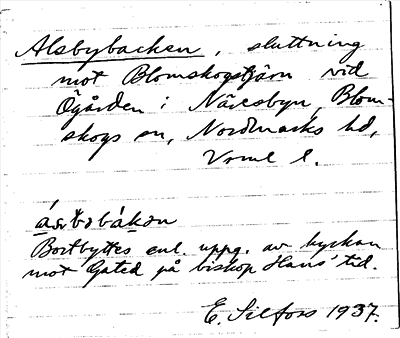 Alsbybacken, sluttning
mot Blomskogstjärn vid
Ögården i Näresbyn, Blom-
skogs sn, Nordmarks hd,
Vrml l.
Bortbyttes enl. uppg. av kyrkan
mot Gated på biskop Hans' tid.
E. Silfors 1937.